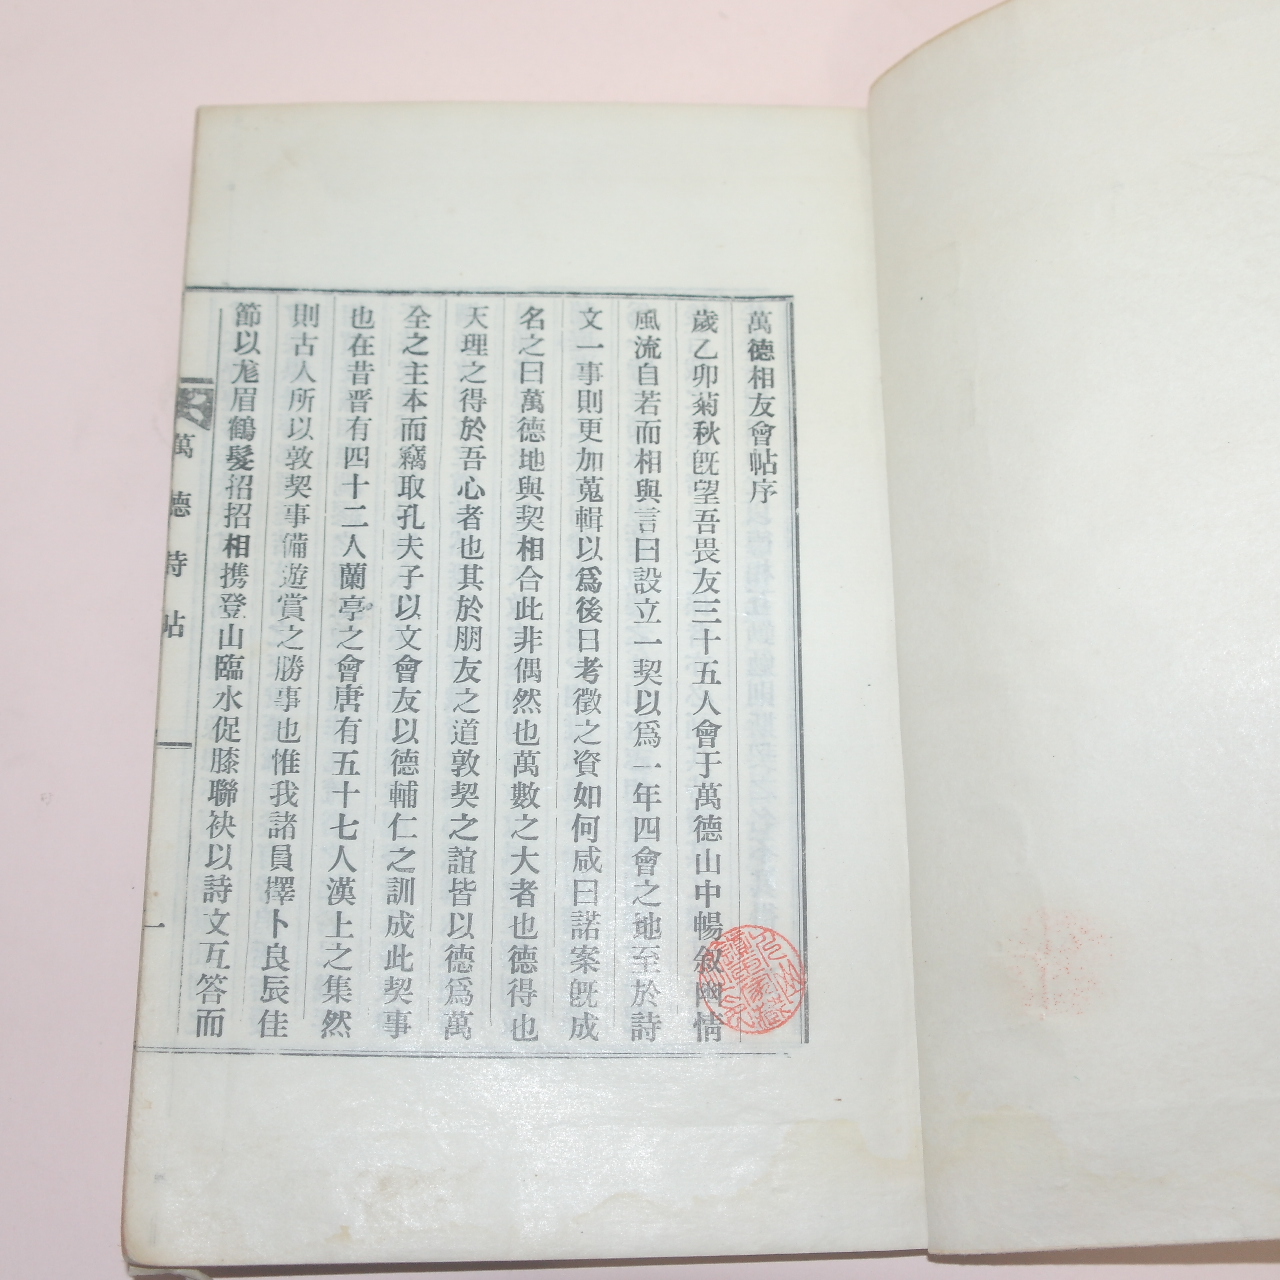 萬德相友會帖序
歲乙卯菊秋旣望吾畏友三十五人會于萬德山中暢敍幽情
風流自若而相與言曰設立一契以爲一年四會之地至於詩
文一事則更加蒐輯以爲後日考徵之資如何咸曰諾案旣成
名之曰萬德地與契相合此非偶然也萬數之大者也德得也
天理之得於吾心者也其於朋友之道敦契之誼皆以德爲萬
全之主本而竊取孔夫子以文會友以德輔仁之訓成此契事
也在昔晋有四十二人蘭亭之會唐有五十七人漢上之集然
則古人所以敦契事備遊賞之勝事也惟我諸員擇卜良辰佳
節以尨眉鶴髮招招相携登山臨水促膝聯袂以詩文互答而
萬德詩帖
一